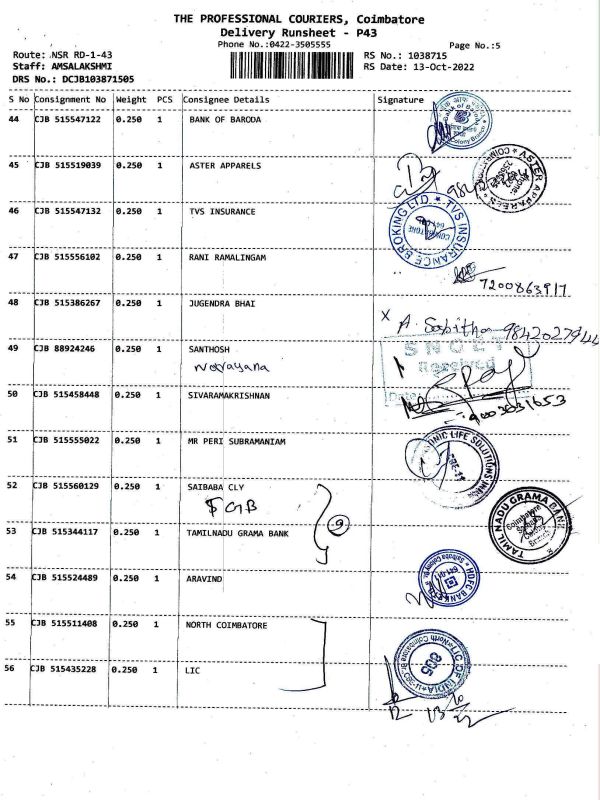 THE PROFESSIONAL COURIERS, Coimbatore
Delivery Runsheet - P43
Phone No.:0422-3505555
Page No.:5
Route: NSR RD-1-43
RS No.: 1038715
Staff: AMSALAKSHMI
RS Date: 13-Oct-2022
DRS No.: DCJB103871505
S No Consignment No Weight PCS Consignee Details Signature
44 CJB 515547122 0.250 1 BANK OF BARODA
45 CJB 515519039 0.250 1 ASTER APPARELS
ASTER APPARELS * COIMBATORE
46 CJB 515547132 0.250 1 TVS INSURANCE
TVS INSURANCE BROKING LTD. *
47 CJB 515556102 0.250 1 RANI RAMALINGAM
7200863917
48 CJB 515386267 0.250 1 JUGENDRA BHAI
X A. Sabitha 9842027944
49 CJB 88924246 0.250 1 SANTHOSH
Narayana
Received
Date
50 CJB 515458448 0.250 1 SIVARAMAKRISHNAN
9003031653
51 CJB 515555022 0.250 1 MR PERI SUBRAMANIAM
SONIC LIFE SOLUTIONS
52 CJB 515560129 0.250 1 SAIBABA CLY
TGB
9
53 CJB 515344117 0.250 1 TAMILNADU GRAMA BANK
TAMIL NADU GRAMA BANK
Coimbatore
54 CJB 515524489 0.250 1 ARAVIND
HDFC BANK
55 CJB 515511408 0.250 1 NORTH COIMBATORE
56 CJB 515435228 0.250 1 LIC
LIC OF INDIA
North Coimbatore Br.
13/10/22